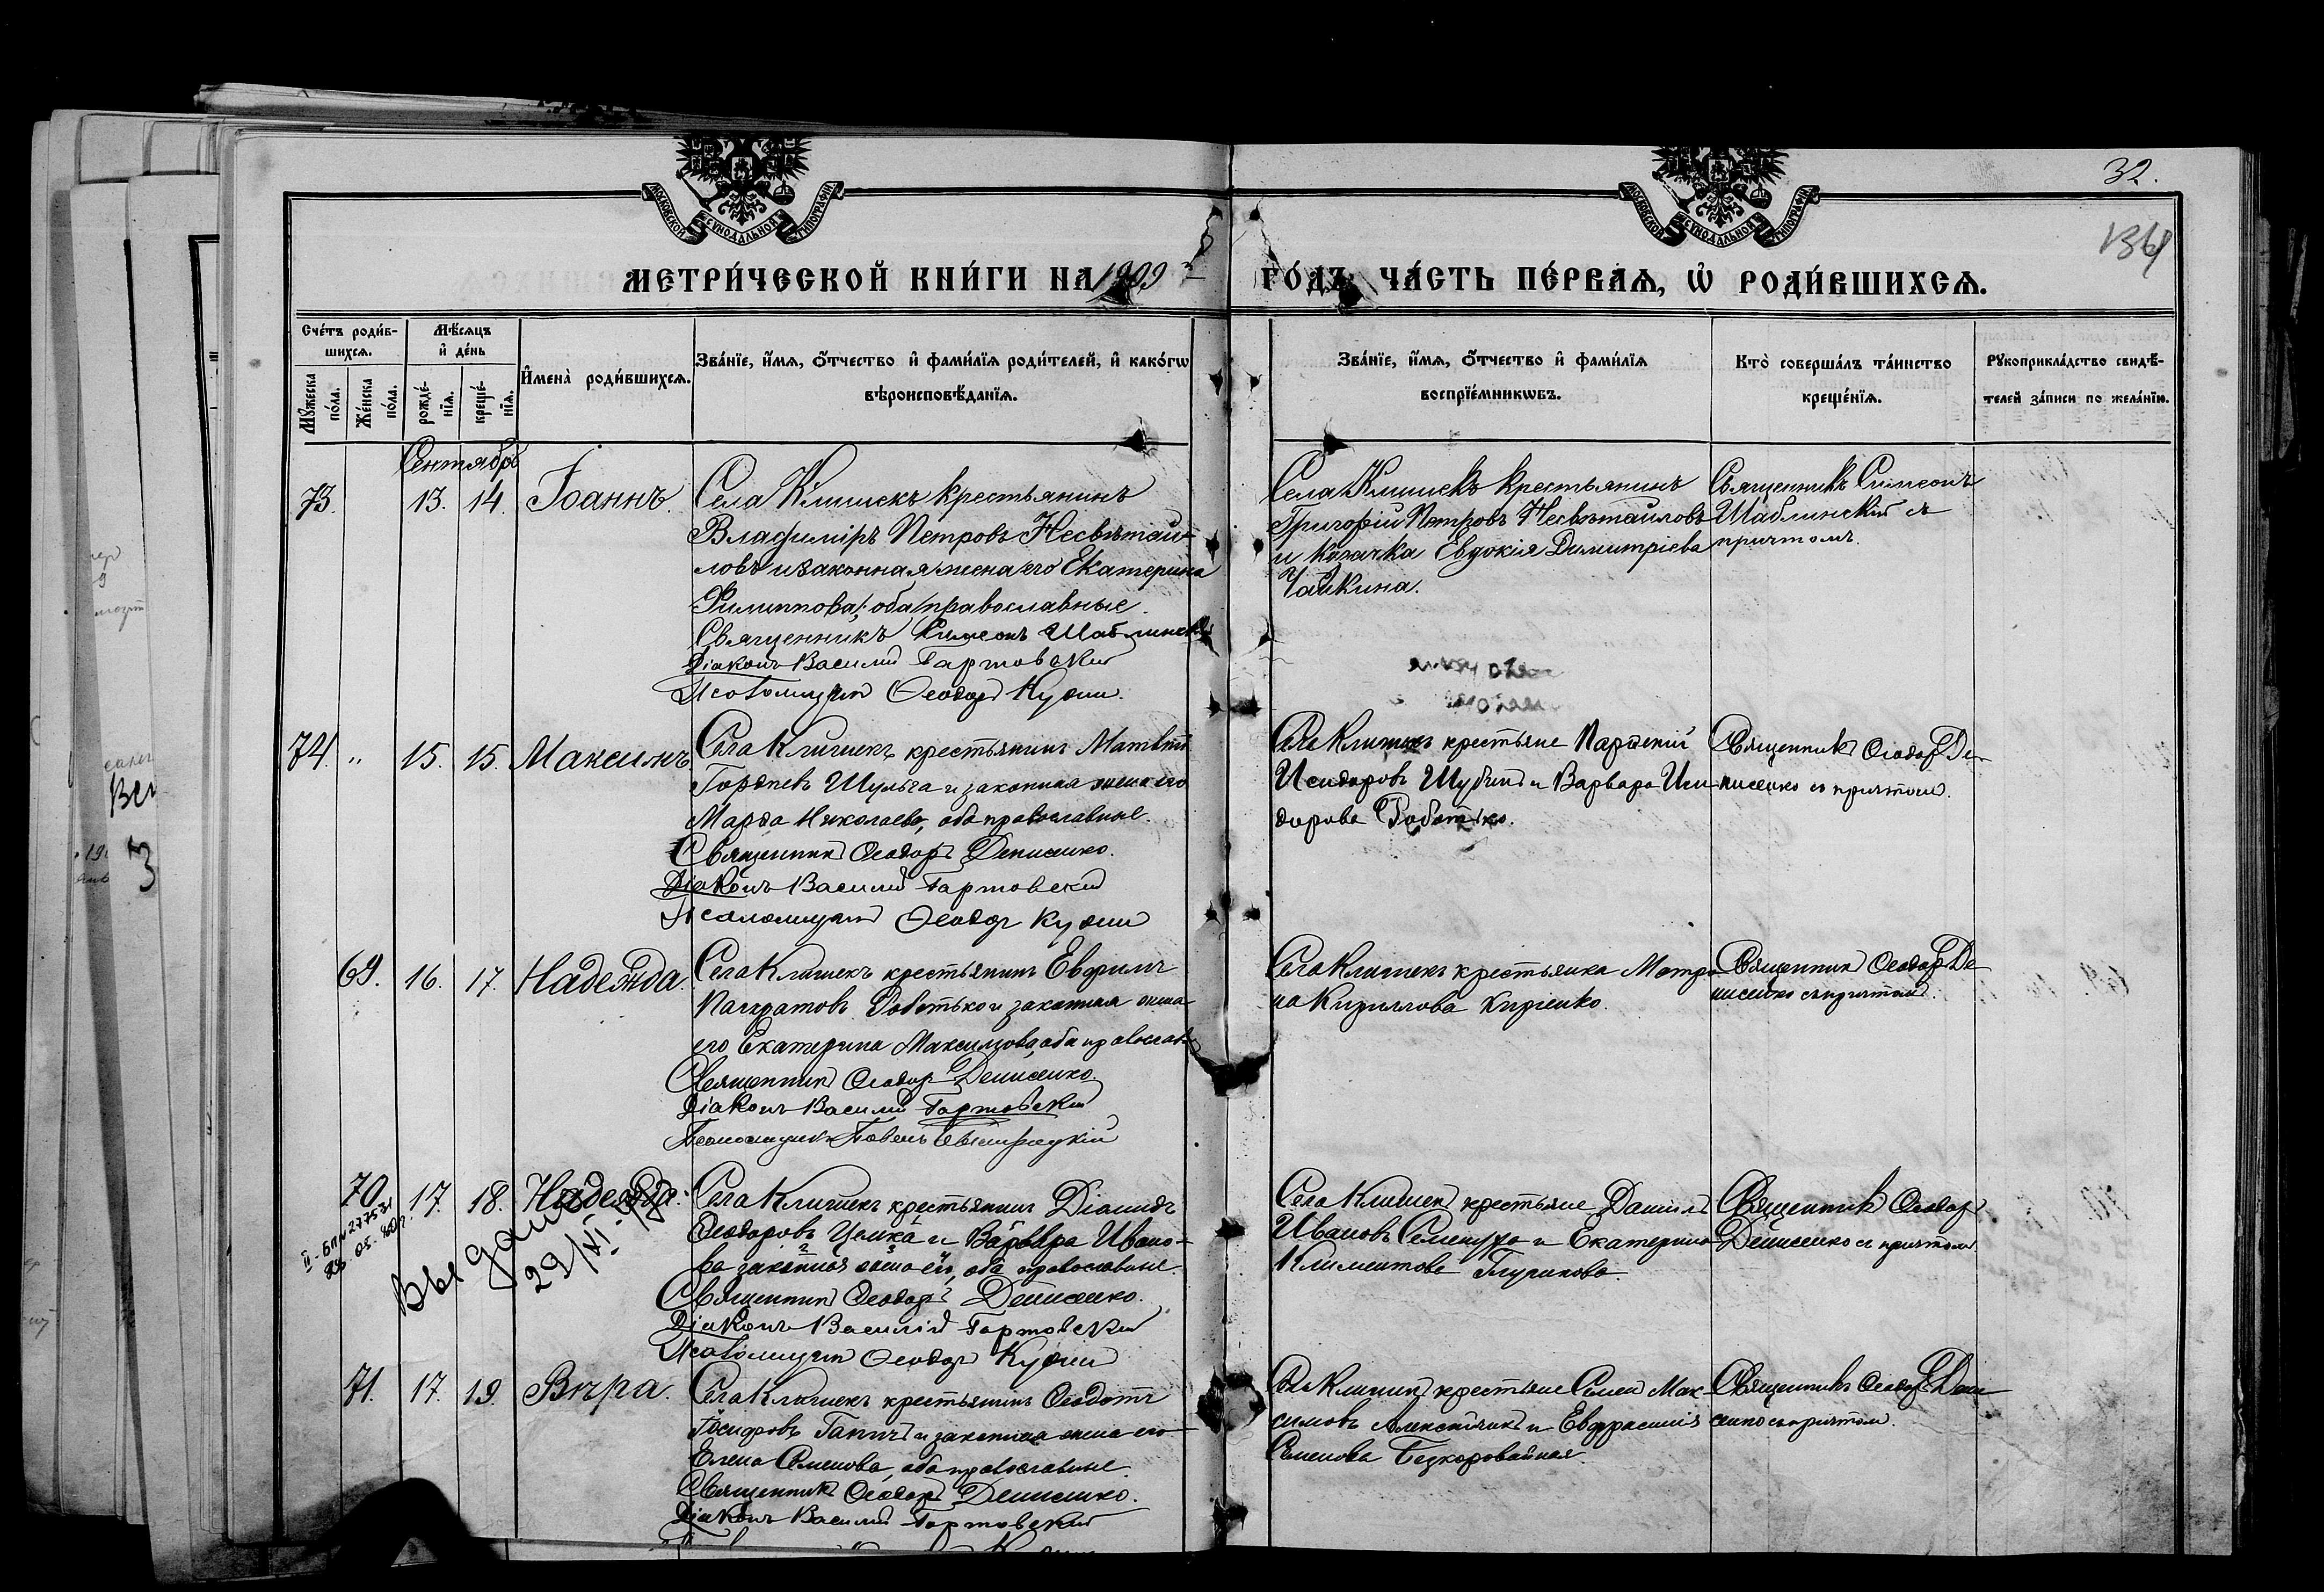 МОСКОВСКОЙ СѴНОДАЛЬНОЙ ТИПОГРАФІИ
МОСКОВСКОЙ СѴНОДАЛЬНОЙ ТИПОГРАФІИ
32.
МЕТРИ́ЧЕСКОЙ КНИ́ГИ НА 1909
ГО́ДЪ, ЧА́СТЬ ПЕ́РВАѦ, Ѽ РОДИ́ВШИХСѦ.
Сче́тъ роди́в-
шихсѧ.
Мꙋ́жеска по́ла.
Же́нска по́ла.
Мѣ́сѧцъ
и҆ де́нь
рожде́-
нїѧ.
креще́-
нїѧ.
И҆мена̀ роди́вшихсѧ.
Зва́нїе, и҆́мѧ, ѻ҆́тчество и҆ фами́лїѧ роди́телей, и҆ како́гѡ
вѣроисповѣ́данїѧ.
Зва́нїе, и҆́мѧ, ѻ҆́тчество и҆ фами́лїѧ
воспрїе́мникѡвъ.
Кто̀ соверша́лъ та́инство
креще́нїѧ.
Рꙋкоприкла́дство свидѣ́-
телей за́писи по жела́нїю.
Сентябрь
73. 13. 14. Іоаннъ.
Села Клишекъ крестьянинъ
Владиміръ Петровъ Несвѣтай-
ловъ и законная жена его Екатерина
Филиппова, оба православные.
Священникъ Симеонъ Шаблинскій
Діаконъ Василій Гартовскій
Псаломщикъ Ѳеодоръ
Села Клишекъ крестьянинъ
Григорій Петровъ Несвѣтайловъ
и козачка Евдокія Димитріева
Чайкина.
Священникъ Симеонъ
Шаблинскій съ
причтомъ.
74. " 15. 15. Максимъ
Села Клишекъ крестьянинъ Матвѣй
Гордѣевъ Шульга и законная жена его
Марѳа Николаева, оба православные.
Священникъ Ѳеодоръ Денисенко.
Діаконъ Василій Гартовскій
Псаломщикъ Ѳеодоръ
Села Клишекъ крестьяне
Исидоровъ и Варвара Иси-
дорова Роботько.
Священникъ Ѳеодоръ Де-
нисенко съ причтомъ.
69. 16. 17. Надежда.
Села Клишекъ крестьянинъ Евфимъ
Панкратовъ Роботько и законная жена
его Екатерина Максимова, оба православ.
Священникъ Ѳеодоръ Денисенко.
Діаконъ Василій Гартовскій
Псаломщикъ Павелъ
Села Клишекъ крестьянка Матро-
на Кириллова Киріенко.
Священникъ Ѳеодоръ Де-
нисенко съ причтомъ.
70. 17. 18. Надежда.
II-БП №277531
Выдано
29/XI-
Села Клишекъ крестьянинъ Діомидъ
Ѳеодоровъ и Варвара Ивано-
ва законная жена его, оба православные.
Священникъ Ѳеодоръ Денисенко.
Діаконъ Василій Гартовскій
Псаломщикъ Ѳеодоръ
Села Клишекъ крестьяне Даніилъ
Ивановъ Семенуха и Екатерина
Климентова
Священникъ Ѳеодоръ
Денисенко съ причтомъ.
71. 17. 19. Вѣра.
Села Клишекъ крестьянинъ Ѳеодотъ
Іосифовъ и законная жена его
Елена Семенова, оба православные.
Священникъ Ѳеодоръ Денисенко.
Діаконъ Василій Гартовскій
Села Клишекъ крестьяне Семенъ Мак-
симовъ и Евфросинія
Семенова Безкоровайная.
Священникъ Ѳеодоръ Дени-
сенко съ причтомъ.